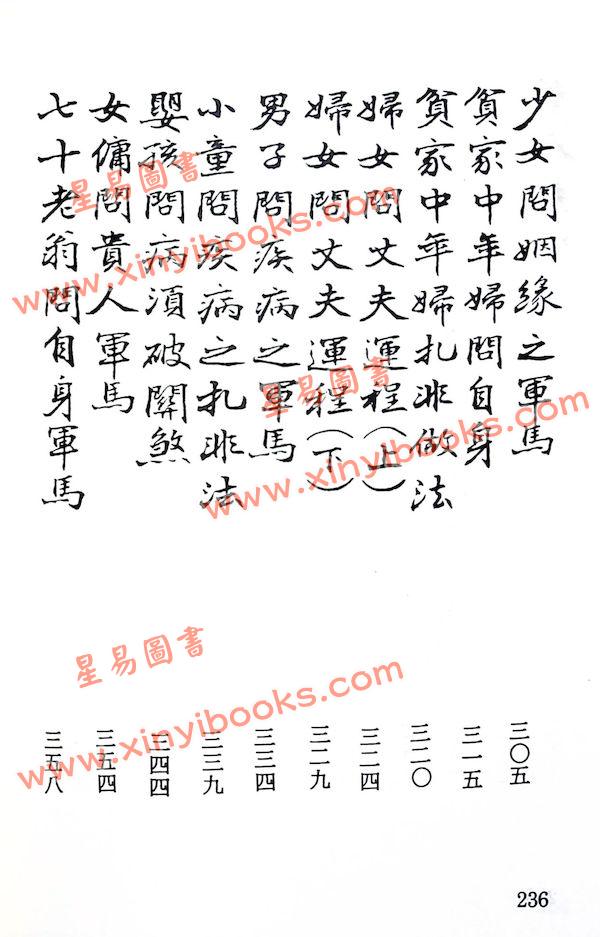 少女問姻緣之軍馬 三〇五
貧家中年婦問自身 三一五
貧家中年婦扎非做法 三二〇
婦女問丈夫運程（上） 三二四
婦女問丈夫運程（下） 三二九
男子問疾病之軍馬 三三四
小童問疾病之扎非法 三三九
嬰孩問病須破關煞 三四四
女傭問貴人軍馬 三五四
七十老翁問自身軍馬 三五八
236
星易圖書
www.xinyibooks.com
星易圖書
www.xinyibooks.com
星易圖書
www.xinyibooks.com